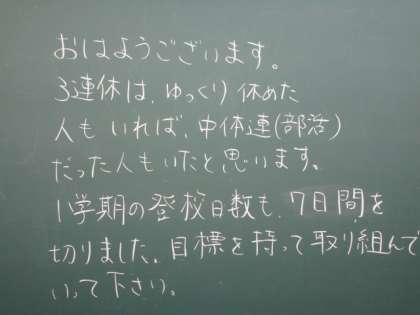 おはようございます。
3連休は、ゆっくり休めた
人もいれば、中体連(部活)
だった人もいたと思います。
1学期の登校日数も、7日間を
切りました。目標を持って取り組んで
いって下さい。